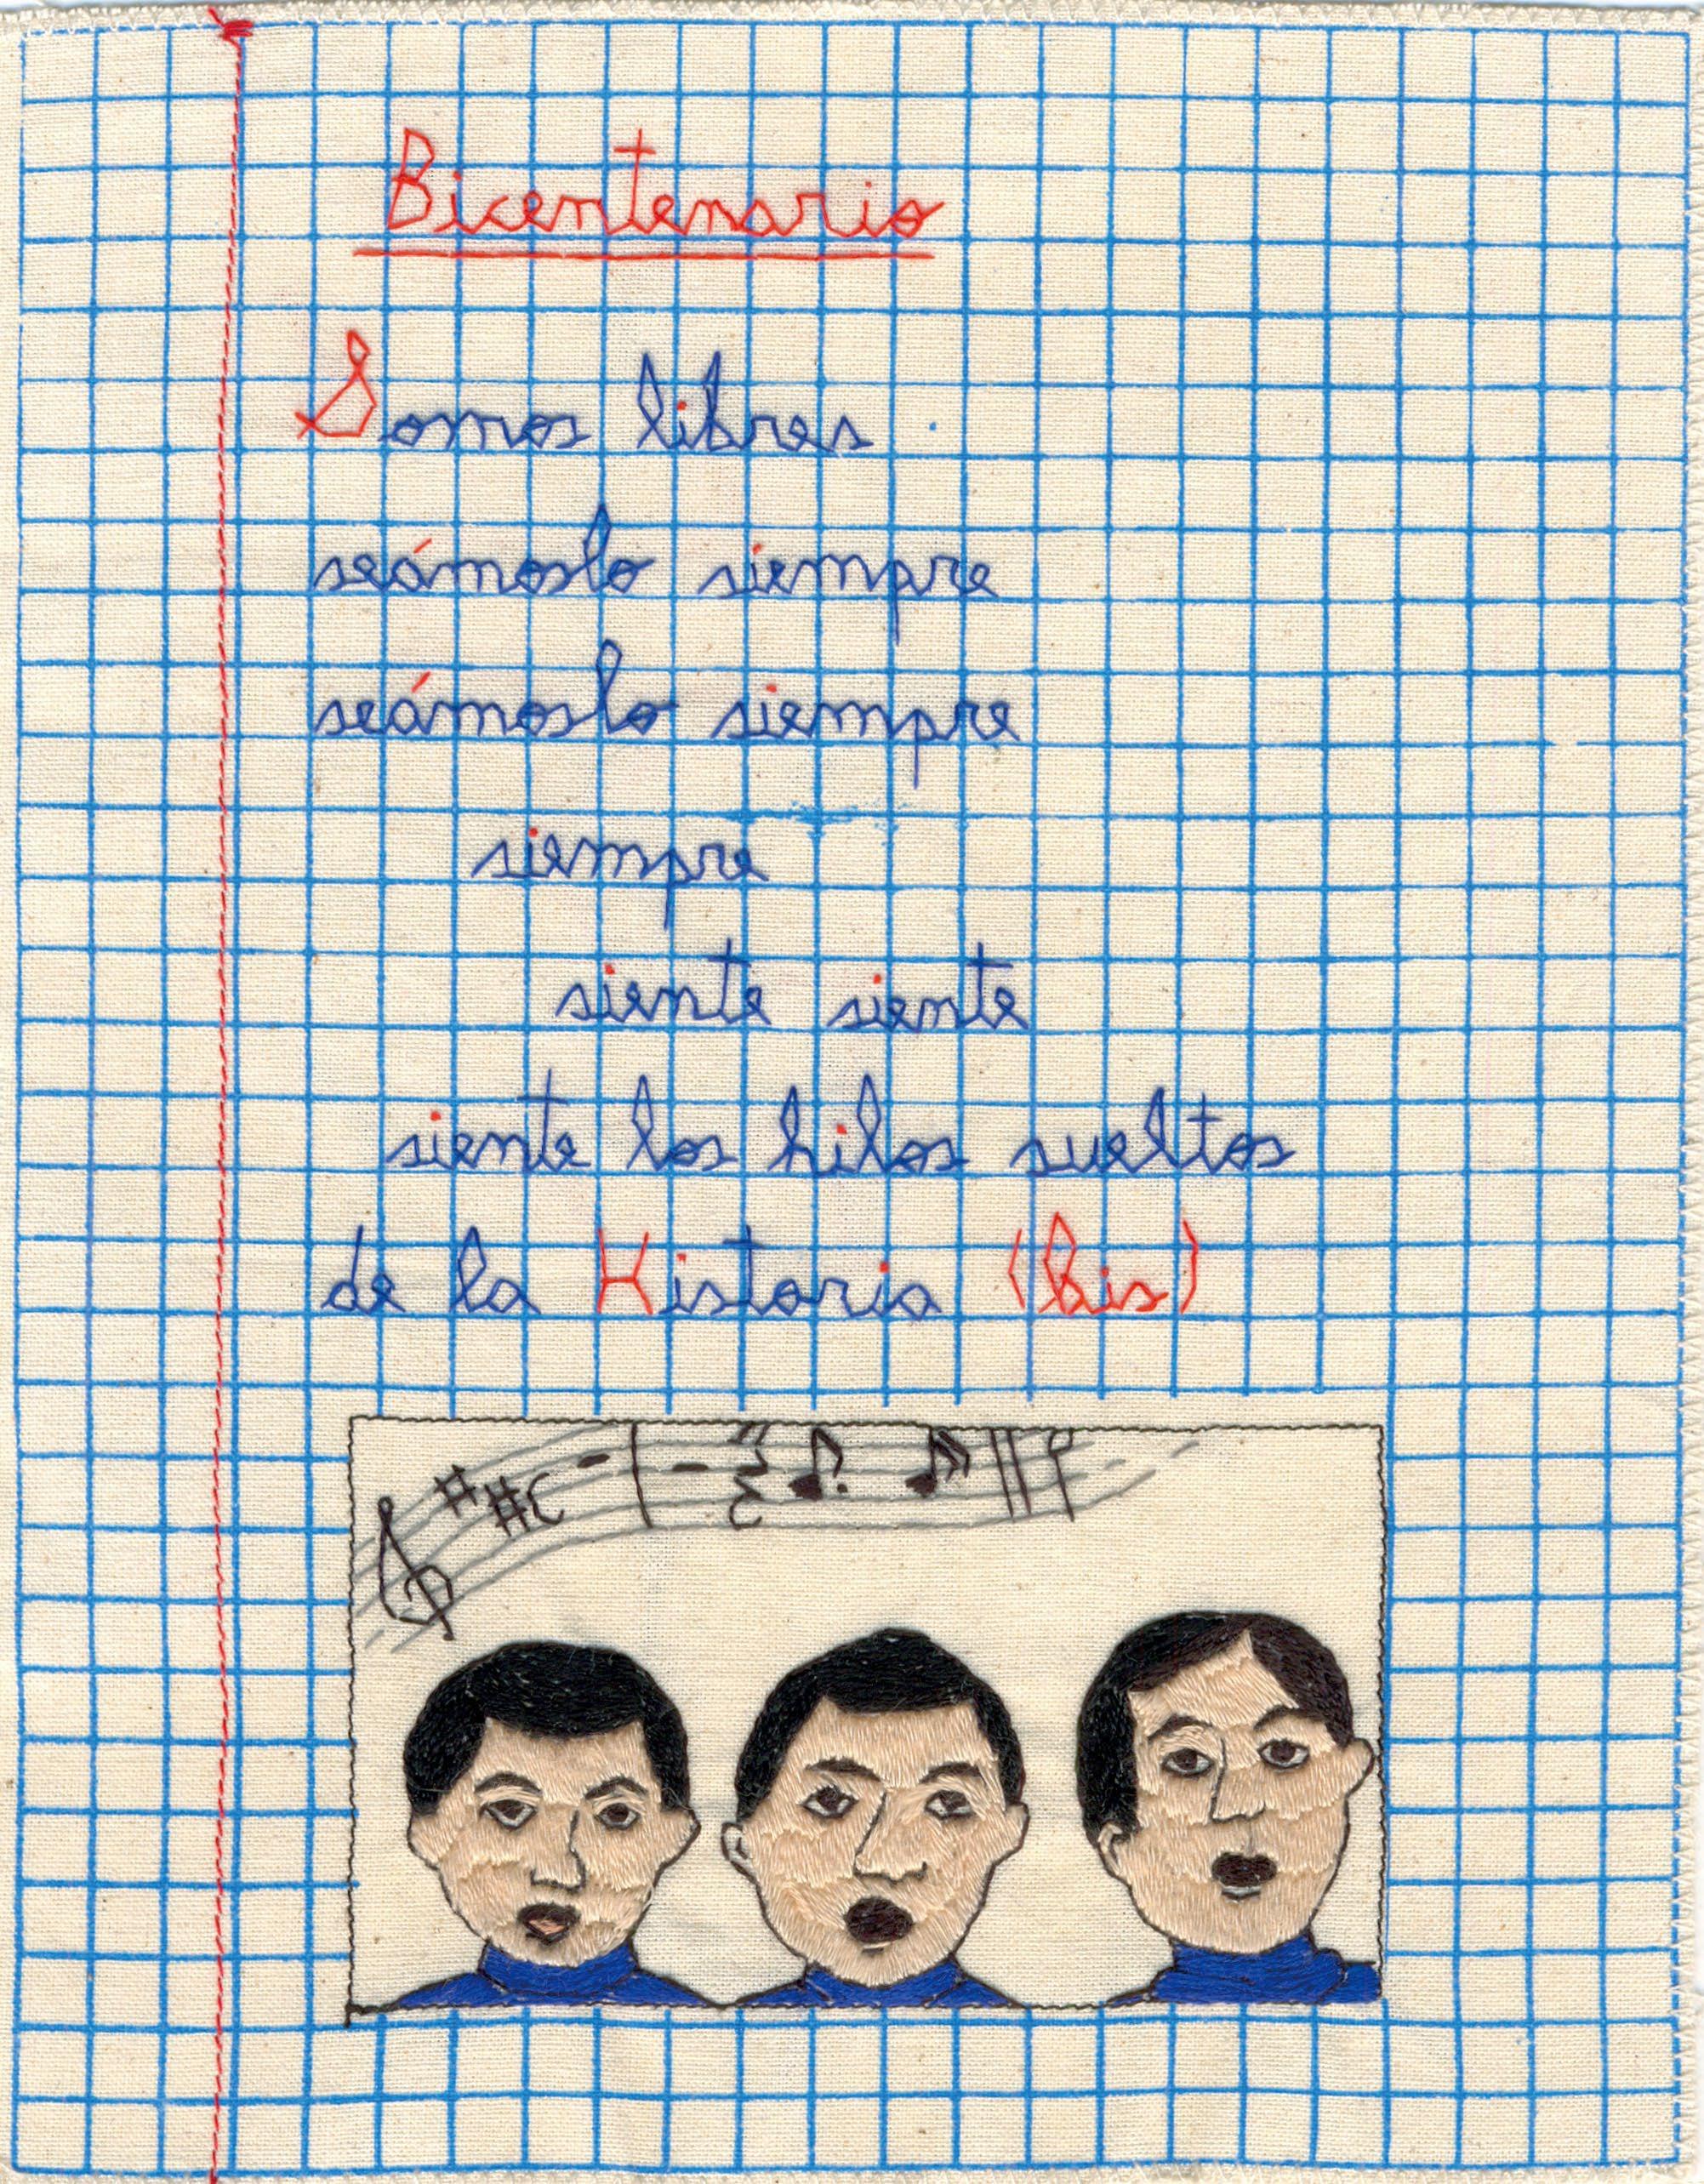 Bicentenario
Somos libres
seámoslo siempre
seámoslo siempre
siempre
siente siente
siente los hilos sueltos
de la Historia (bis)